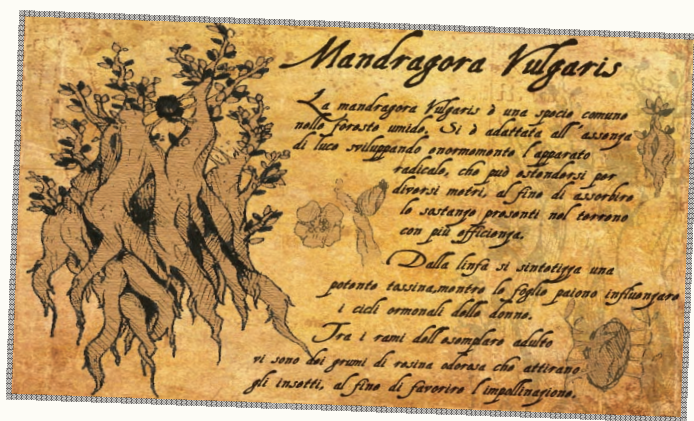 Mandragora Vulgaris
La mandragora Vulgaris è una specie comune
nelle foreste umide. Si è adattata all'assenza
di luce sviluppando enormemente l'apparato
radicale, che può estendersi per
diversi metri, al fine di assorbire
le sostanze presenti nel terreno
con più efficienza.
Dalla linfa si sintetizza una
potente tossina,mentre le foglie paiono influenzare
i cicli ormonali delle donne.
Tra i rami dell'esemplare adulto
vi sono dei grumi di resina odorosa che attirano
gli insetti, al fine di favorire l'impollinazione.